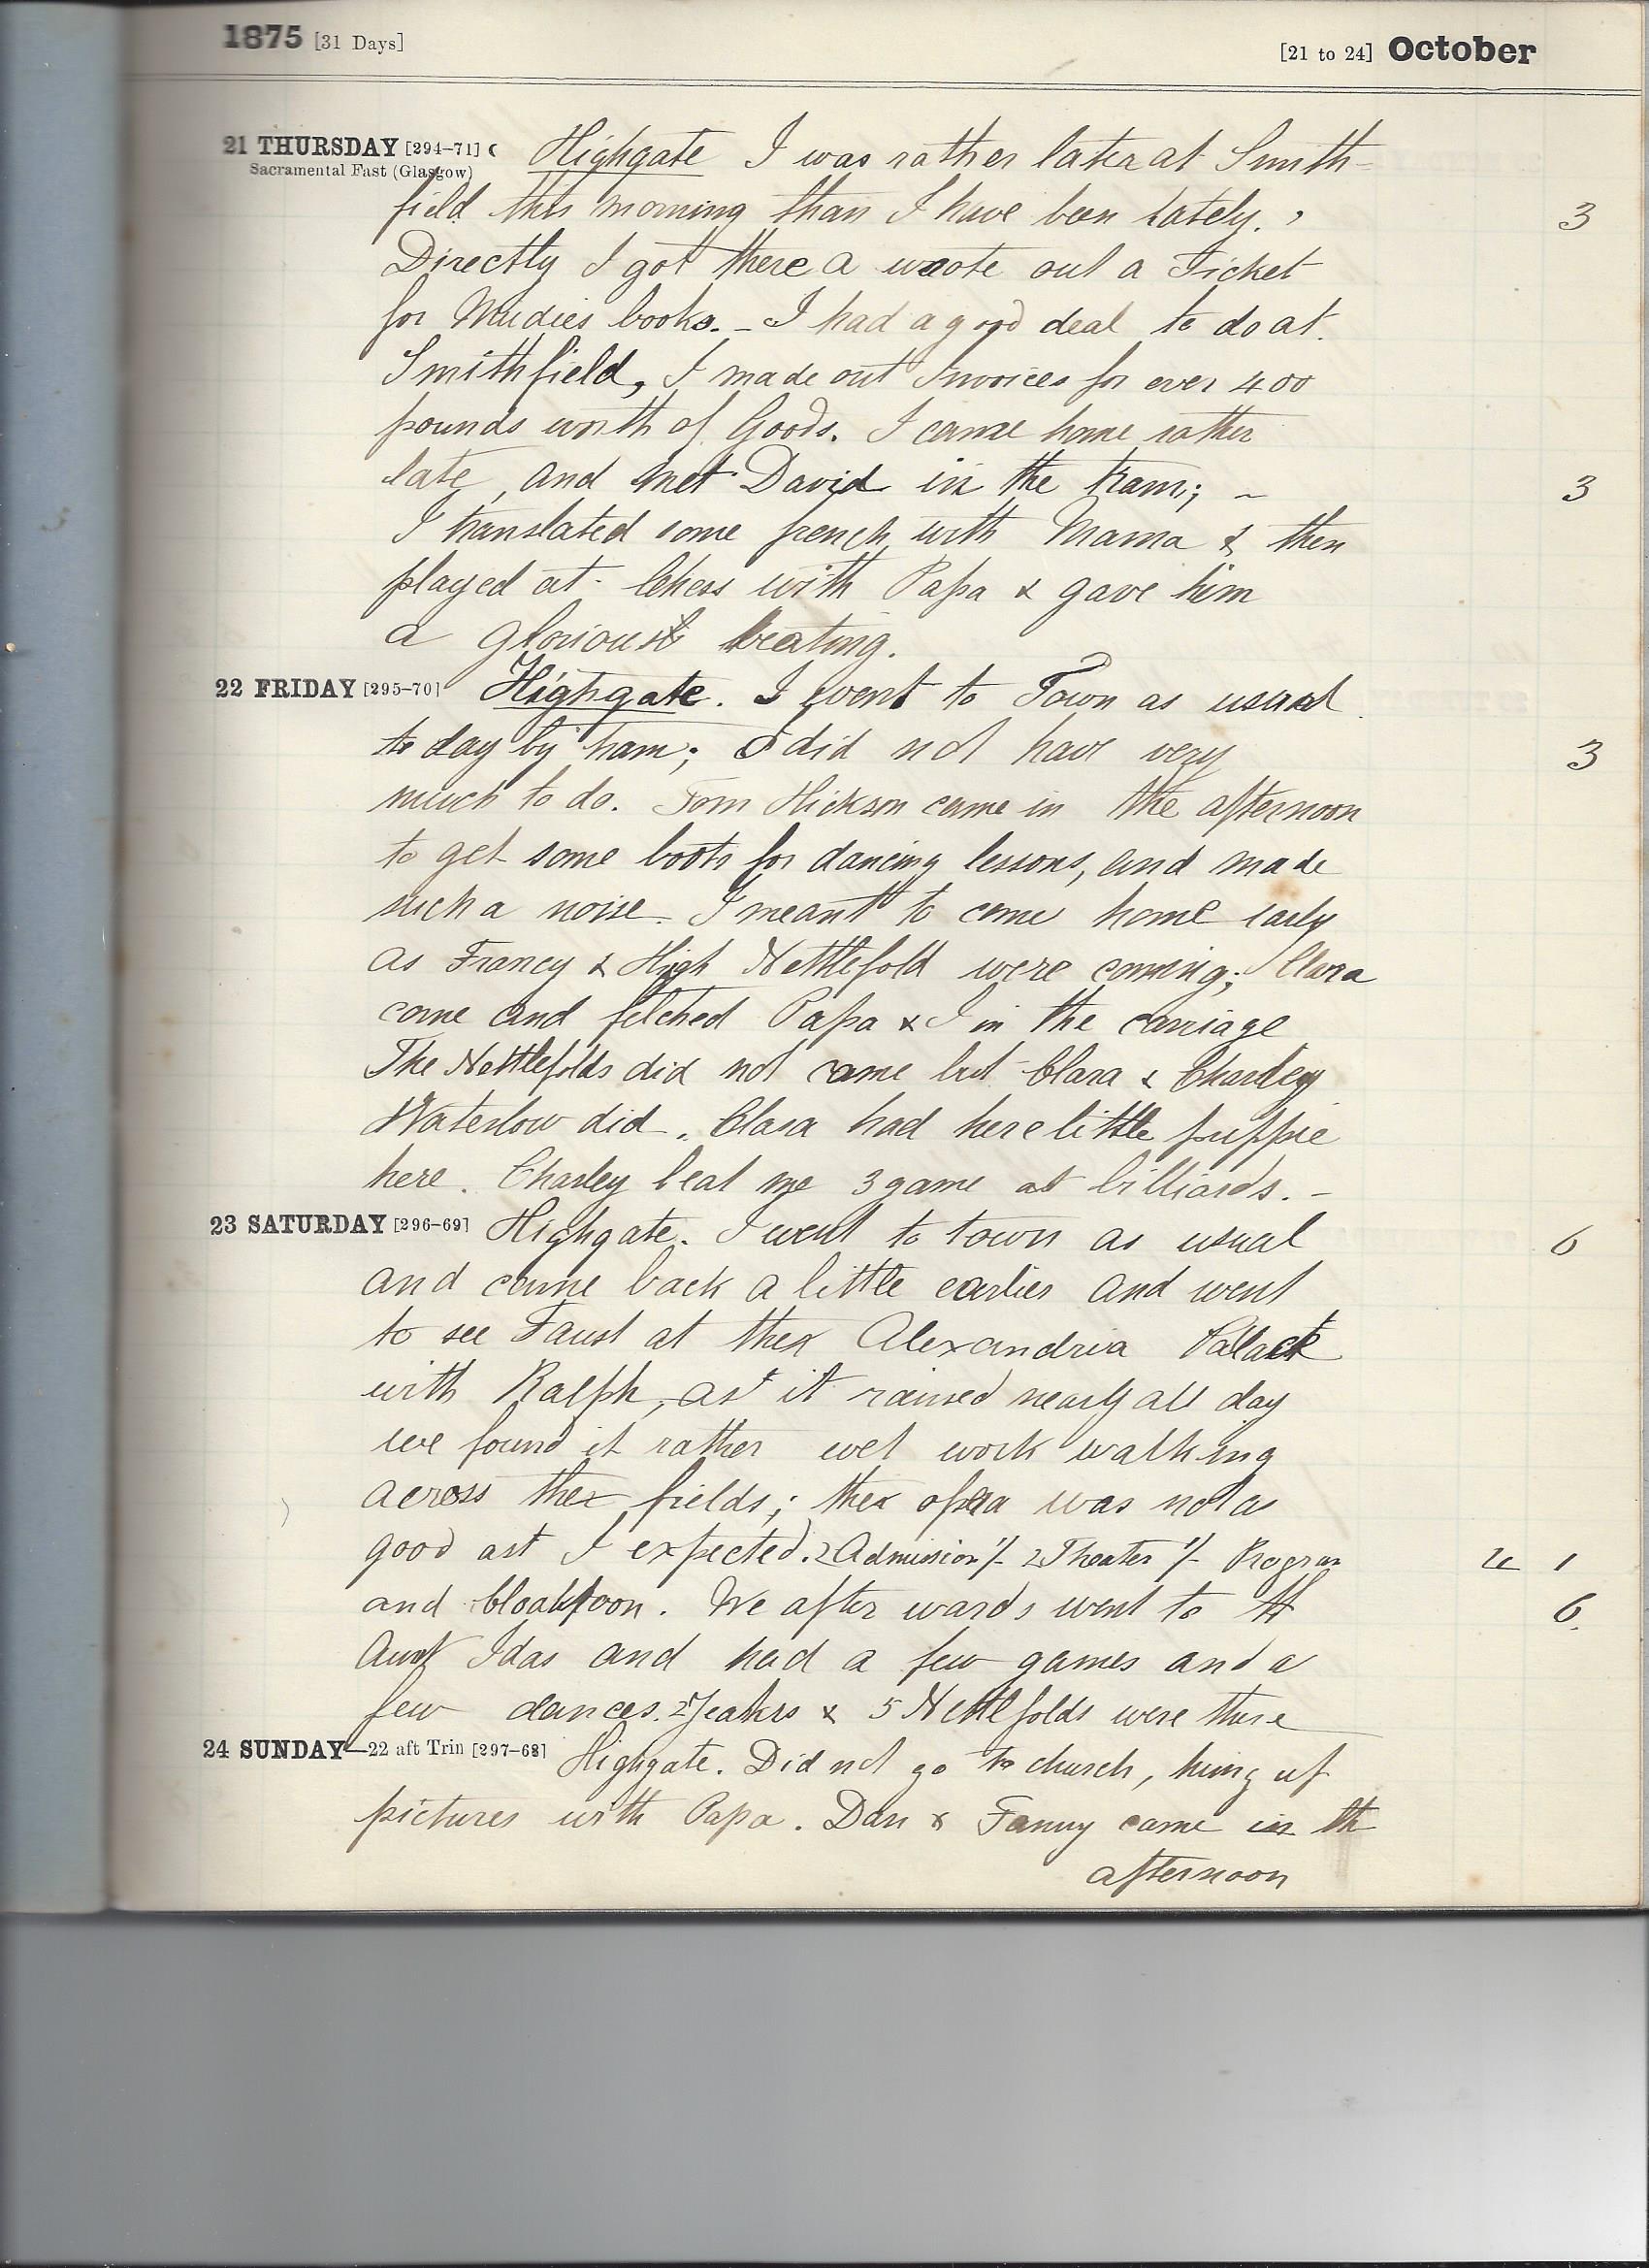 1875 [31 Days] [21 to 24] October
21 THURSDAY [294-71] ☾ Highgate I was rather later at Smith-
Sacramental Fast (Glasgow)
field this morning than I have been lately. 3
Directly I got there a wrote out a Ticket
for Mudies books. - I had a good deal to do at.
Smithfield, I made out Invoices for over 400
pounds worth of Goods. I came home rather
late, and met David in the tram; - 3
I translated some french with Mama & then
played at Chess with Papa & gave him
a glorious beating.
22 FRIDAY [295-70] Highgate. I went to Town as usual
to day by tram; I did not have very 3
much to do. Tom Hickson came in the afternoon
to get some boots for dancing lessons, and made
such a noise. I meant to come home early
as Francy & Hugh Nettlefold were coming; Clara
come and fetched Papa & I in the carriage
The Nettlefolds did not come but Clara & Charley
Waterlow did. Clara had here little puppie
here. Charley beat me 3 game at billiards. -
23 SATURDAY [296-69] Highgate. I went to town as usual 6
and came back a little earlier and went
to see Faust at the Alexandria Pallace
with Ralph, as it rained nearly all day
we found it rather wet work walking
across the fields; the opera was not as
good as I expected. 2 Admission 1/- 2 Theater 1/- Program 1
and Cloakroom. We after wards went to 6.
Aunt Idas and had a few games and a
few dances. 2 & 5 Nettlefolds were there
24 SUNDAY-22 aft Trin [297-68] Highgate. Did not go to church, hung up
pictures with Papa. Dan & Fanny came in th
afternoon